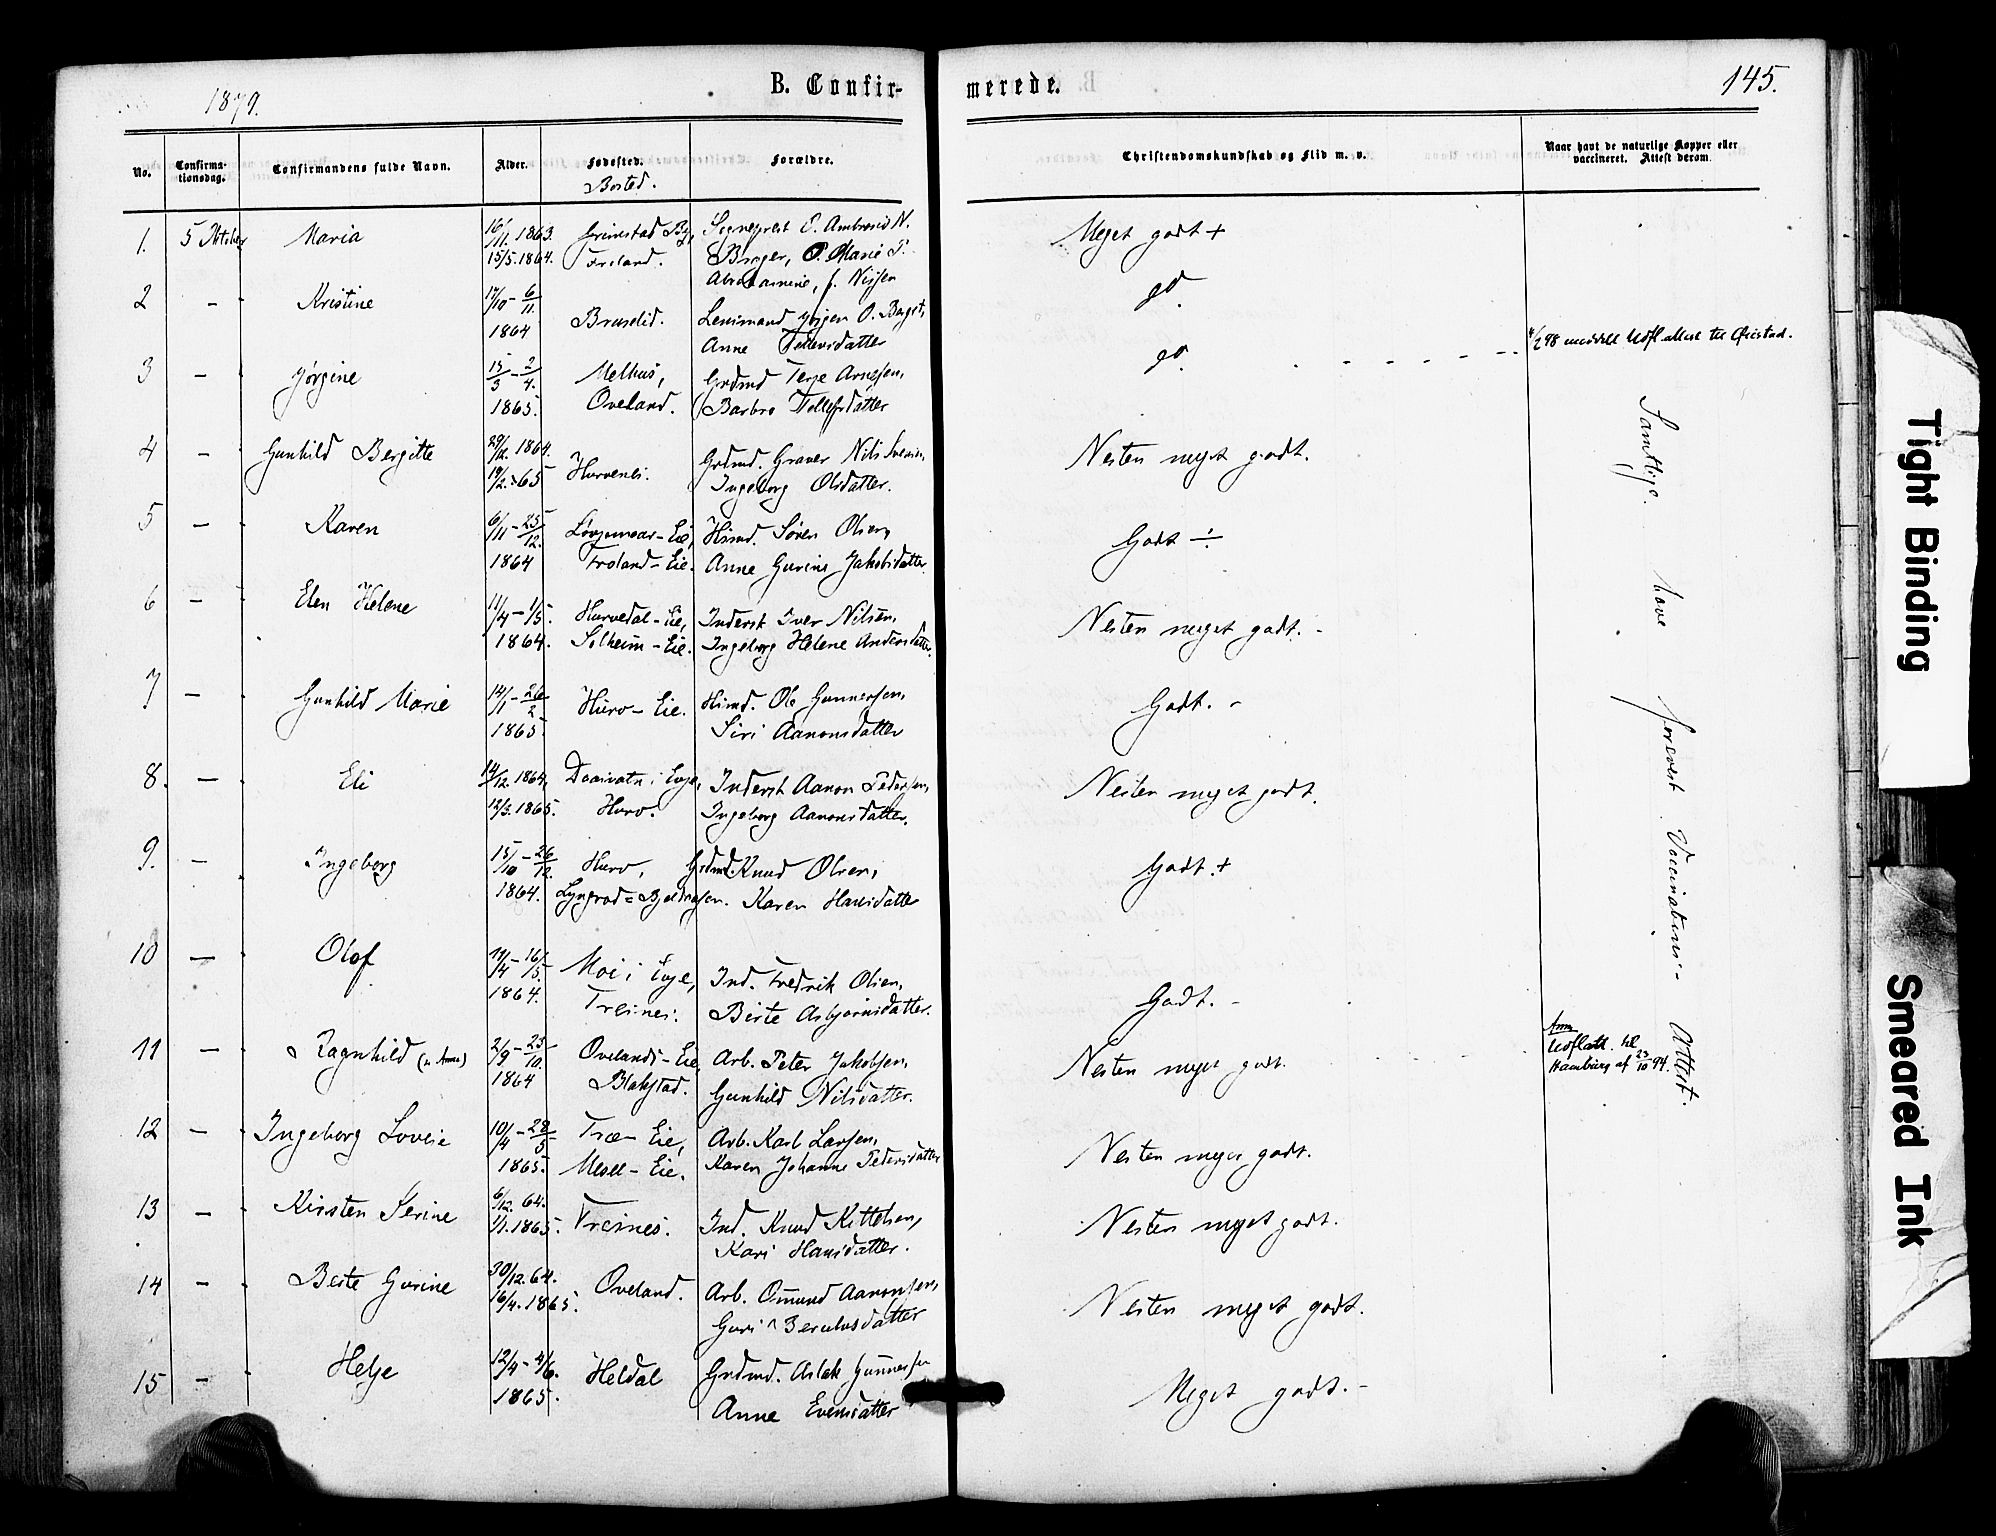 1879.
B. Confir-
merede.
145.
No.
Confirma-
tionsdag.
Confirmandens fulde Navn.
Alder.
Fødested.
Bosted.
Forældre.
Christendomskundskab og Flid m. v.
Naar havt de naturlige Kopper eller
vaccineret. Attest derom.
1. 5 Oktober Maria 16/11. 1863. Grimstad By, Sogneprest E. Ambrosius N. Meget godt +
15/5. 1864. Froland. Marie P.
f. Nissen
2 - Kristine 17/10 - 6/11. go.
1864 Bruselid. Lensmand Jørgen O.
Anne Tellevsdatter
3 - Jørgine 15/3 - 2/4. Melhus, Grdmd Terje Arnesen, go. - - - - - 98 meddelt Udfl attest til
1865. Oveland. Barbro Tellefsdatter
4 - Gunhild Bergitte 29/12. 1864. Grdmd. Graver Nils Nesten meget godt.
19/2. 65 Hurvenes. Ingeborg Olsdatter.
5 - Karen 6/11 - 25/12. Eie, Husmd. Søren Olsen, Godt ÷
1864 Froland - Eie. Anne Gurine Jakobsdatter
6 - Elen Helene 11/4 - 1/5. Hurvedal - Eie, Inderst Iver Nilsen, Nesten meget godt. -
1864. Solheim - Eie. Ingeborg Helene Andersdatter.
7 - Gunhild Marie 14/1 - 26/2 Hurv - Eie. Husmd. Ole Gunnersen, Godt. -
1865. Siri Aanonsdatter
8. - Eli 14/12. 1864, i Evje, Inderst Aanon Pedersen, Nesten meget godt.
12/3. 1865. Hurv. Ingeborg Aanonsdatter.
9. - Ingeborg 15/10 - 26/12. Hurv, Grdmd. Knud Olsen, Godt. +
1864. Karen Hansdatter
10 - Olaf 17/4 - 16/5. Moi i Evje, Ind. Fredrik Olsen, Godt. -
1864. Tresnes. Birte Asbjørnsdatter.
11 - Ragnhild (u Anne) 2/9 - 23/10. Ovelands - Eie, Arb. Peter Jakobsen, Nesten meget godt.
1864 Blakstad. Gunhild Nilsdatter.
Ann
Udflatt. til
Hamburg af 23/10 94.
12 - Ingeborg Lovise 10/4 - 28/5 Træ - Eie, Arb. Karl Larsen, Nesten meget godt.
1865. Messel - Eie. Karen Johanne Pedersdatter
13 - Kirsten Serine 6/12. 64. Tresnes. Ind. Knud Kittelsen, Nesten meget godt.
1/1. 1865. Kari Hansdatter.
14 - Berte Gurine 30/12. 64. Oveland. Arb. Omund Aanonsen, Nesten meget godt.
16/4. 1865. Guri
15 - Helje 12/4 - 4/6. Heldal Grdmd. Aslak Gunnersen Meget godt. -
1865. Anne Evensdatter
Samtlige have forevist Vaccinations - Attest.
Tight Binding
Smeared Ink